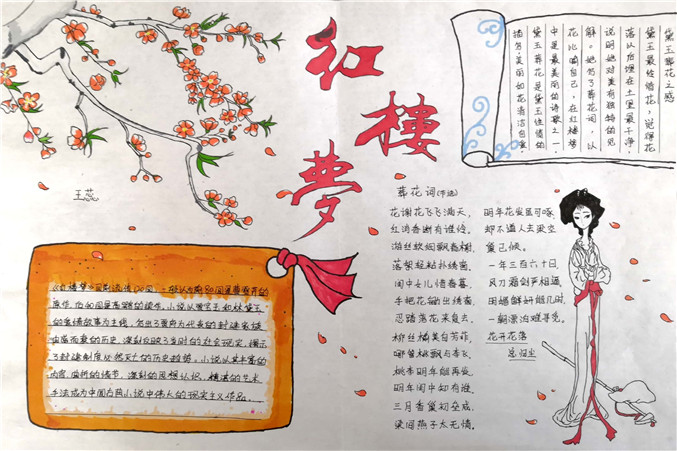 红樓夢
黛玉葬花之感
黛玉最怜惜花，觉得花
落以后埋在土里最干净，
说明她对美有独特的见
解。她写了葬花词，以
花比喻自己，在红楼梦
中是最美丽的诗歌之一，
黛玉葬花是黛玉性情的
描写，美丽如花清洁自爱。
王蕊
《红楼梦》共120回，一般认为前80回是曹雪芹的
原作，后40回是高鹗的续作。小说以贾宝玉和林黛玉
的爱情故事为主线，写出了贾府为代表的封建家族
由盛而衰的历史，深刻反映了当时的社会现实，揭示
了封建制度必然灭亡的历史趋势。小说以其丰富的
内容，曲折的情节，深刻的思想认识，精湛的艺术
手法成为中国古典小说中伟大的现实主义作品。
葬花词(节选)
花谢花飞飞满天，
红消香断有谁怜。
游丝软烟飘春榭，
落絮轻粘扑绣帘。
闺中女儿惜春暮，
手把花锄出绣帘。
忍踏落花来复去，
柳丝榆荚自芳菲，
哪管桃飘与李飞。
桃李明年能再发，
明年闺中知有谁，
三月香巢初垒成，
梁间燕子太无情。
明年花发虽可啄，
却不道人去梁空
巢已倾。
一年三百六十日，
风刀霜剑严相逼，
明媚鲜妍能几时，
一朝漂泊难寻觅。
花开花落
总归尘